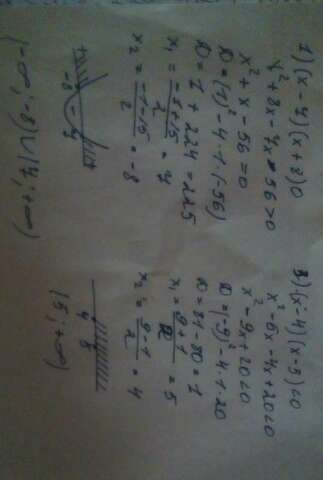 1) (x - 7)(x + 8) 0
x² + 8x - 7x - 56 > 0
x² + x - 56 = 0
D = (1)² - 4·1·(-56)
D = 1 + 224 = 225
x₁ = (-1+15)/2 = 7
x₂ = (-1-15)/2 = -8
+ - +
-8 7
(-∞; -8) ∪ (7; +∞)
3) (x - 4)(x - 5) < 0
x² - 5x - 4x + 20 < 0
x² - 9x + 20 < 0
D = (-9)² - 4·1·20
D = 81 - 80 = 1
x₁ = (9+1)/2 = 5
x₂ = (9-1)/2 = 4
4 5
(5; +∞)